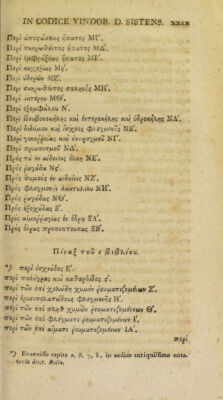 IN CODICE VINDOB. D. SISTENS. XXIX
Περὶ ἀποστάσεως ἥπατος ΜΓ΄.
Περὶ σκιῤῥωθέντος ἥπατος ΜΔ΄.
Περὶ ἐμφράξεως ἥπατος ΜΕ΄.
Περὶ καχεξίας Μς΄.
Περὶ ὑδέρων ΜΖ΄.
Περὶ σκιῤῥωθέντος σπληνὸς ΜΗ΄.
Περὶ ἰκτέρου ΜΘ΄.
Περὶ ἐξομφάλου Ν΄.
Περὶ βουβωνοκήλης καὶ ἐντεροκήλης καὶ ὑδροκήλης ΝΑ΄.
Περὶ διδύμου καὶ ὄσχεος φλεγμονῆς ΝΒ΄.
Περὶ γονοῤῥοίας καὶ ὀνειρογμοῦ ΝΓ΄.
Περὶ πριαπισμοῦ ΝΔ΄.
Πρὸς τὰ ἐν αἰδοίοις ἕλκη ΝΕ΄.
Πρὸς ῥαγάδα Νς΄.
Πρὸς θυμοὺς ἐν αἰδοίοις ΝΖ΄.
Πρὸς φλεγμονὴν δακτυλίου ΝΗ΄.
Πρὸς ῥαγάδας ΝΘ΄.
Πρὸς ἐξοχάδας Ξ΄.
Πρὸς αἱμοῤῥαγίας ἐν ἕδρᾳ ΞΑ΄.
Πρὸς ἕδρας προπιπτούσας ΞΒ΄.
Πίναξ τοῦ ε βιβλίου.
*) περὶ ἰσχιάδος Ε΄.
περὶ ποδάγρας καὶ καθαρσίδος ς΄.
περὶ τῶν ἐπὶ χολώδη χυμὸν ῥευματιζομένων Ζ΄.
περὶ ἐρυσιπελατώδους φλεγμονῆς Η΄.
περὶ τῶν ἐπὶ πλήθ χυμῶν ῥευματιζομένων Θ΄.
περὶ τῶν ἐπὶ φλέγματι ῥευματιζομένων Ι΄.
περὶ τῶν ἐπὶ αἵματι ῥευματιζομένων ΙΑ΄.
περὶ
*) Evanuisse capita α, β, γ, δ, in codice antiquissimo nota-